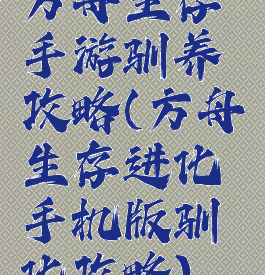 方舟生存
手游驯养
攻略(方舟
生存进化
手机版驯
化攻略)